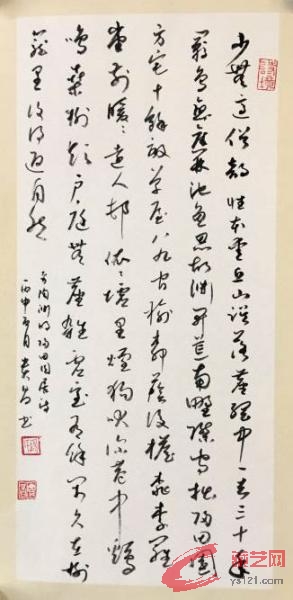 少無適俗韻性本愛丘山誤落塵網中一去三十年
羈鳥戀舊林池魚思故淵開荒南野際守拙歸田園
方宅十餘畝草屋八九間榆柳蔭後檐桃李羅
堂前暧々遠人村依々墟里煙狗吠深巷中鷄
鳴桑樹顛户庭無塵雜虛室有餘閒久在樊
籠里復得返自然
陶淵明歸田園居詩
丙申 月 書
艺网
ys121.com